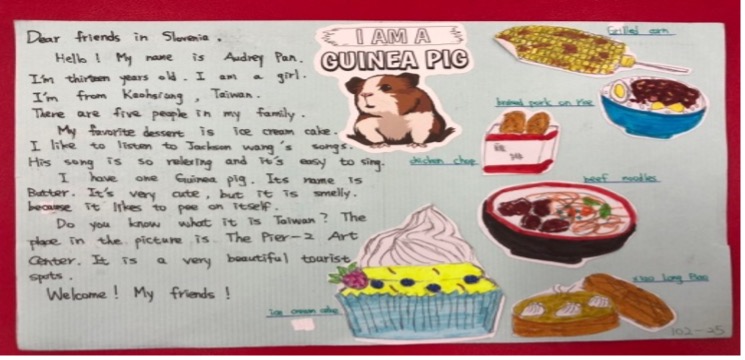 Dear friends in Slovenia.
Hello! My name is Audrey Pan.
I'm thirteen years old. I am a girl.
I'm from Kaohsiang, Taiwan.
There are five people in my family.
My favorite dessert is ice cream cake.
I like to listen to Jackson wang's songs.
His song is so relexing and it's easy to sing.
I have one Guinea pig. Its name is
Butter. It's very cute, but it is smelly.
because it likes to pee on itself.
Do you know what it is Taiwan? The
place in the picture is The Pier-2 Art
Center. It is a very beautiful tourist
spots.
Welcome! My friends!
I AM A
GUINEA PIG
Grilled corn
braised pork on rice
chicken chop
雞排
beef noodles
xiao long Bao
ice cream cake
102-25